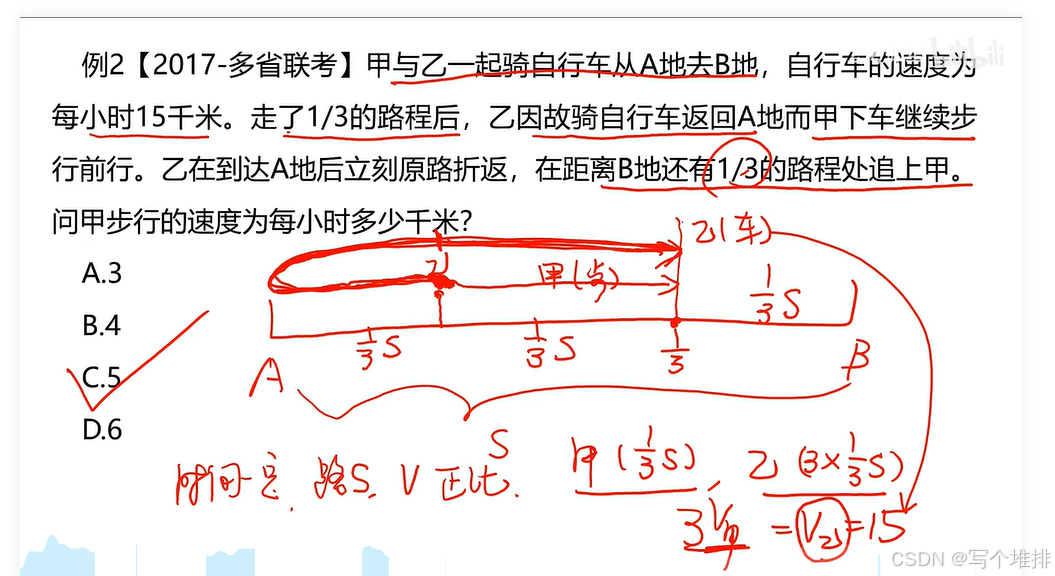 bilibili
例2【2017-多省联考】甲与乙一起骑自行车从A地去B地，自行车的速度为
每小时15千米。走了1/3的路程后，乙因故骑自行车返回A地而甲下车继续步
行前行。乙在到达A地后立刻原路折返，在距离B地还有1/3的路程处追上甲。
问甲步行的速度为每小时多少千米？
乙(车)
A.3
甲(步)
1/3 S
B.4
1/3 S
1/3 S
1/3
C.5
A
B
D.6
S
时间定, 路S, V 正比.
甲(1/3 S), 乙(3×1/3 S)
3V甲 = V乙 = 15
CSDN @写个堆排